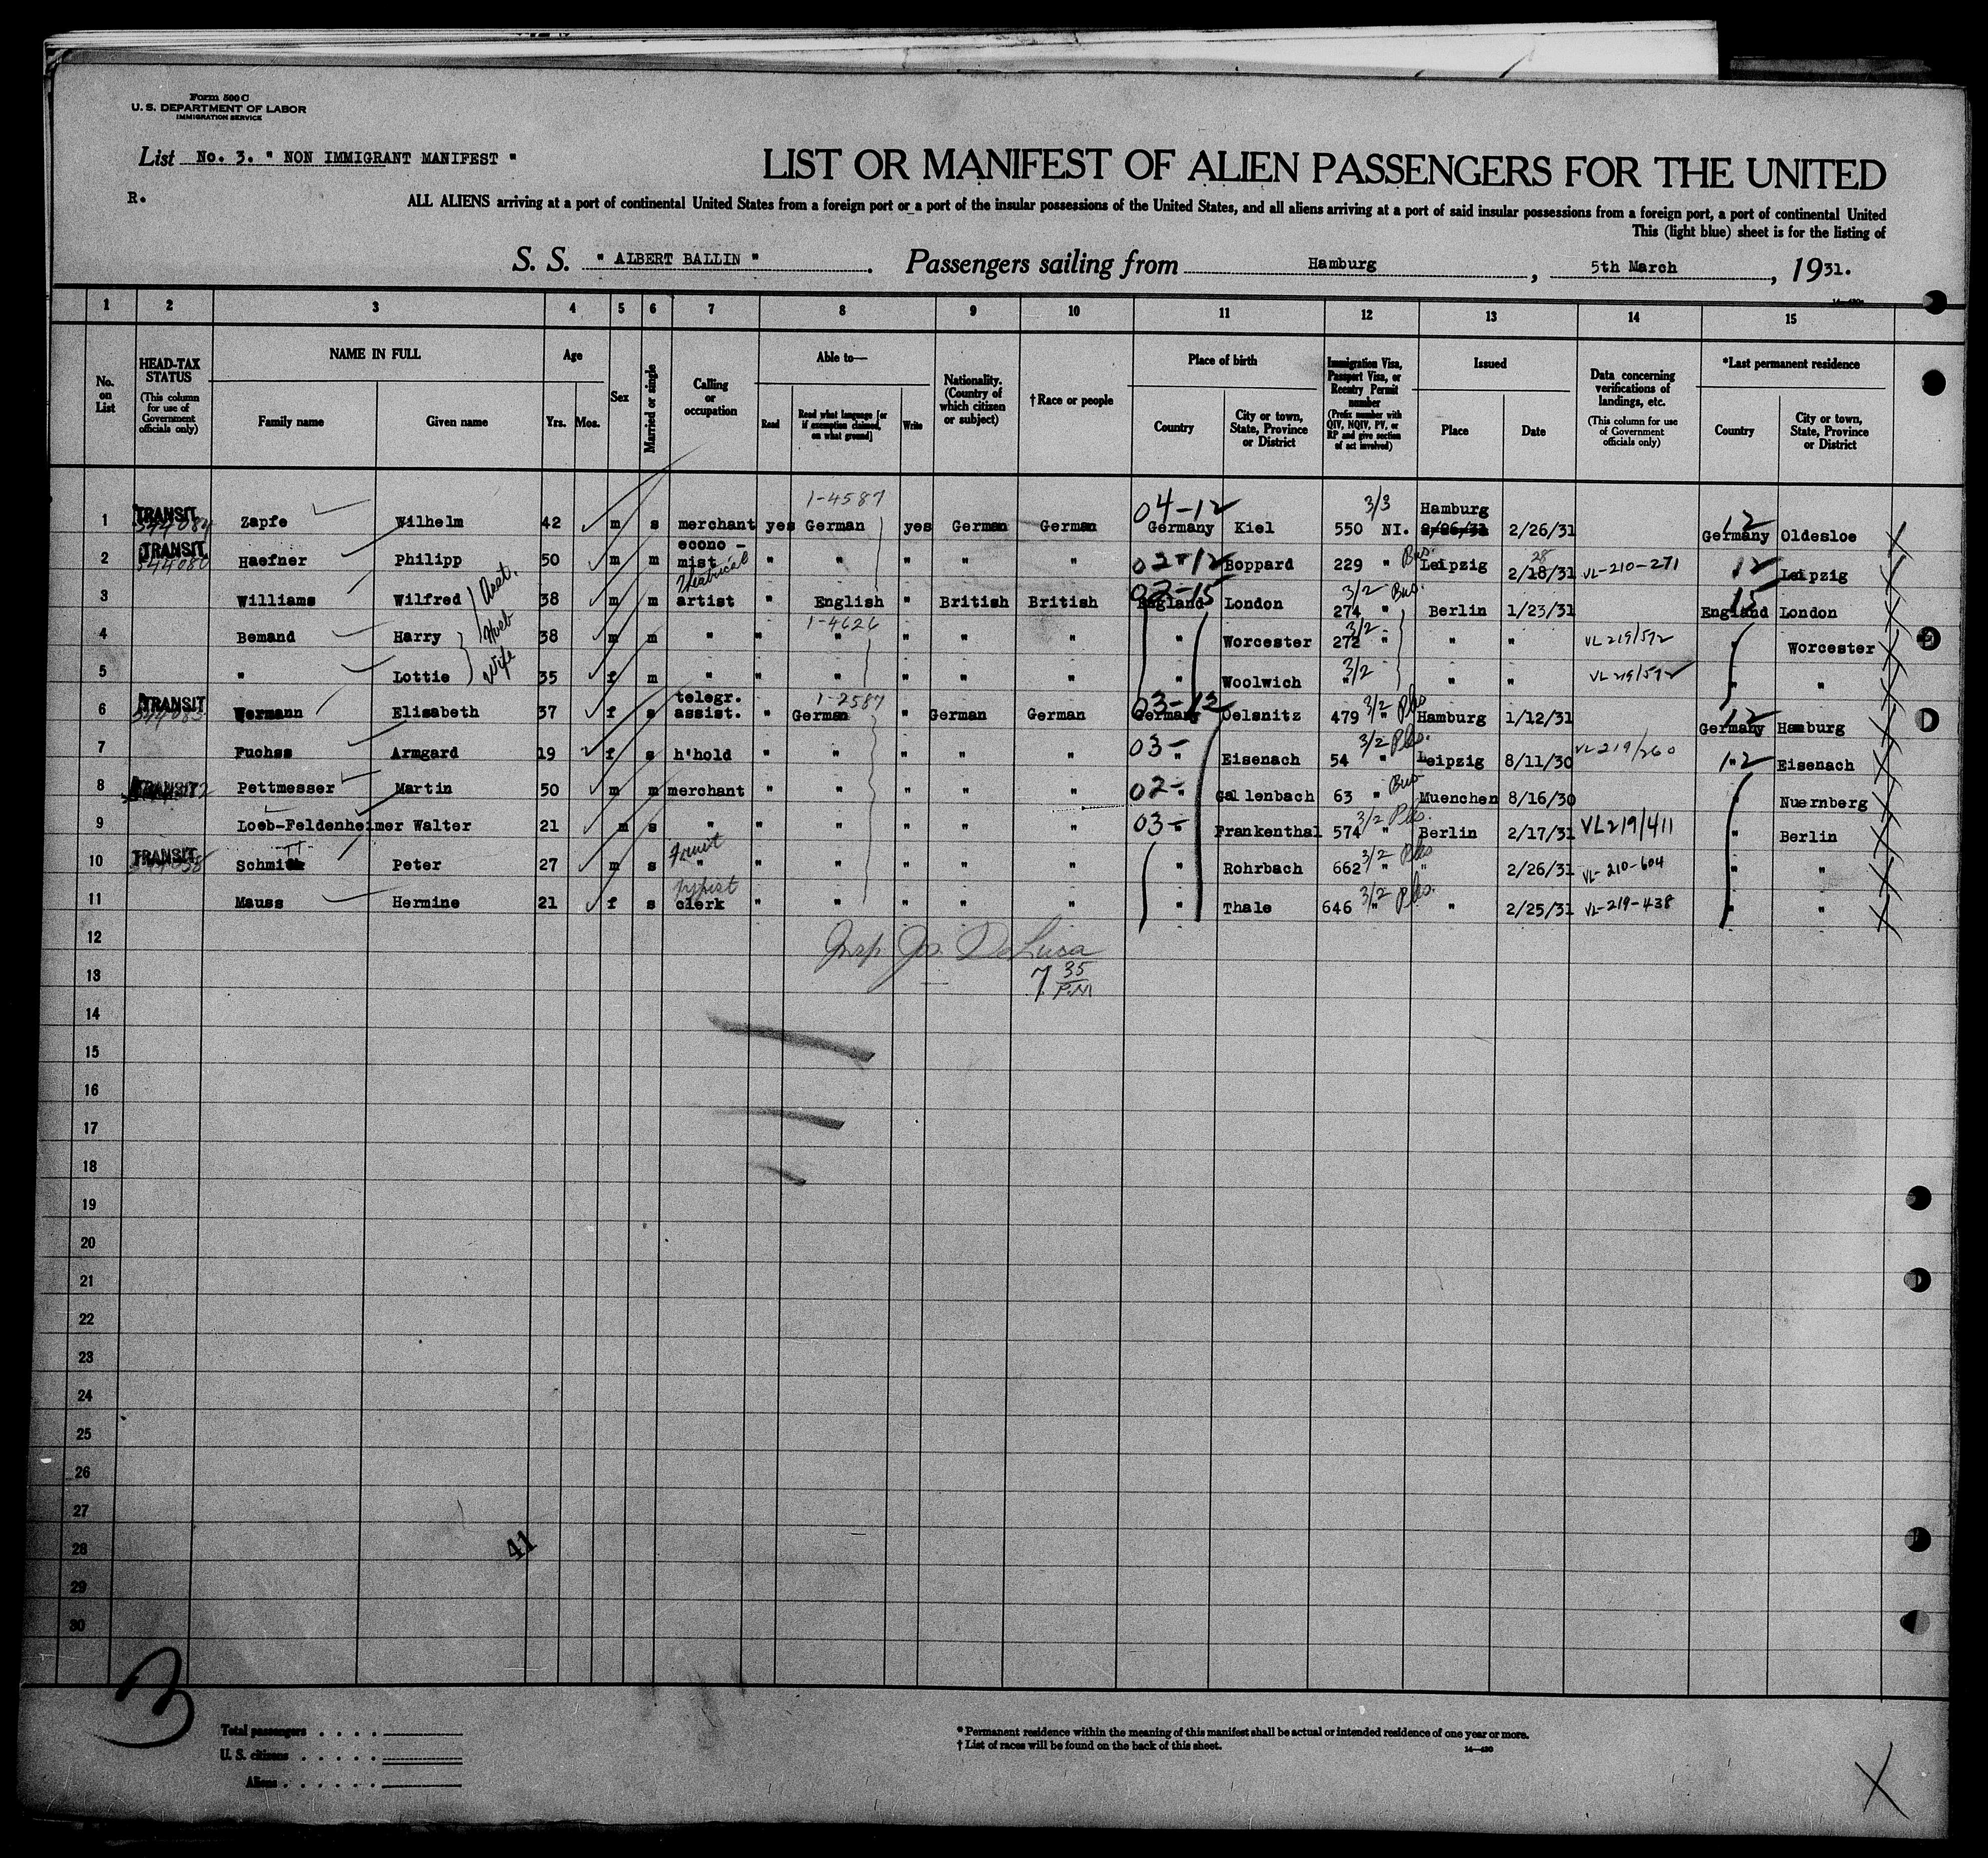 Form 500 C
U. S. DEPARTMENT OF LABOR
IMMIGRATION SERVICE
List No. 3. " NON IMMIGRANT MANIFEST "
R.
LIST OR MANIFEST OF ALIEN PASSENGERS FOR THE UNITED
ALL ALIENS arriving at a port of continental United States from a foreign port or a port of the insular possessions of the United States, and all aliens arriving at a port of said insular possessions from a foreign port, a port of continental United
This (light blue) sheet is for the listing of
S. S. " ALBERT BALLIN ". Passengers sailing from Hamburg, 5th March, 1931.
1 2 3 4 5 6 7 8 9 10 11 12 13 14 15
No. on List
HEAD-TAX STATUS (This column for use of Government officials only)
NAME IN FULL Family name Given name
Age Yrs. Mos.
Sex
Married or single
Calling or occupation
Able to— Read Read what language [or if exemption claimed, on what ground] Write
Nationality. (Country of which citizen or subject)
† Race or people
Place of birth Country City or town, State, Province or District
Immigration Visa, Passport Visa, or Reentry Permit number (Prefix number with QIV, NQIV, PV, or RP and give section of act involved)
Issued Place Date
Data concerning verifications of landings, etc. (This column for use of Government officials only)
*Last permanent residence Country City or town, State, Province or District
1-4587 04-12 3/3 Hamburg
1 TRANSIT 544084 Zapfe Wilhelm 42 m s merchant yes German yes German German Germany Kiel 550 NI. 2/26/31 2/26/31 12 Germany Oldesloe
2 TRANSIT Haefner Philipp 50 m m econo - mist " " " " " 02-12 Boppard 229 " Bus. Leipzig 28 2/18/31 VL-210-271 12 Leipzig
3 Williams Wilfred Asst. 38 m m Theatrical artist " English " British British 02-15 England London 3/2 Bus. 274 " Berlin 1/23/31 15 England London
1-4626
4 Bemand Harry 38 m m " " " " " " " Worcester 3/2 272 " " " VL 219/592 Worcester
5 " Lottie Wife 35 f m " " " " " " " Woolwich 3/2 " " " VL 219/592 " "
1-2587
6 TRANSIT Wermann Elisabeth 37 f s telegr. assist. " German " German German 03-12 Germany Oelsnitz 479 3/2 " Pls Hamburg 1/12/31 12 Germany Hamburg
7 Fuchss Armgard 19 f s h'hold " " " " " 03- " Eisenach 3/2 Pls. 54 " Leipzig 8/11/30 VL 219/260 12 " Eisenach
8 TRANSIT Pettmesser Martin 50 m m merchant " " " " " 02- " Gallenbach 63 " Bus Muenchen 8/16/30 " Nuernberg
9 Loeb-Feldenheimer Walter 21 m s " " " " " " 03- " Frankenthal 3/2 Pls. 574 " Berlin 2/17/31 VL 219/411 " Berlin
10 TRANSIT Schmitt Peter 27 m s " " " " " " " Rohrbach 662 3/2 " Pls " 2/26/31 VL-210-604 " "
11 Mauss Hermine 21 f s typist clerk " " " " " " Thale 646 3/2 " Pls. " 2/25/31 VL-219-438 " "
12
Insp Jos. DeLuca
13
7 35 P.M
14
15
16
17
18
19
20
21
22
23
24
25
26
27
28
41
29
30
3
Total passengers . . . .
U. S. citizens . . . . .
Aliens . . . . . .
* Permanent residence within the meaning of this manifest shall be actual or intended residence of one year or more.
† List of races will be found on the back of this sheet.
14—430
X